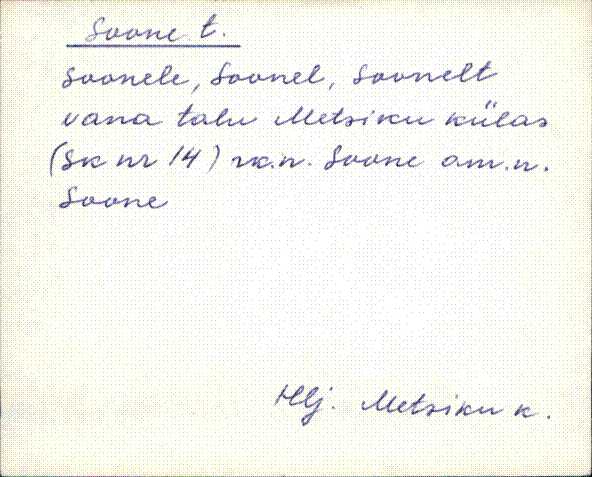 Soone t.
Soonele, Soonel, Soonelt
vana talu Metsiku külas
(Sk nr 14) rk.n. Soone am.n.
Soone
Hlj. Metsiku k.